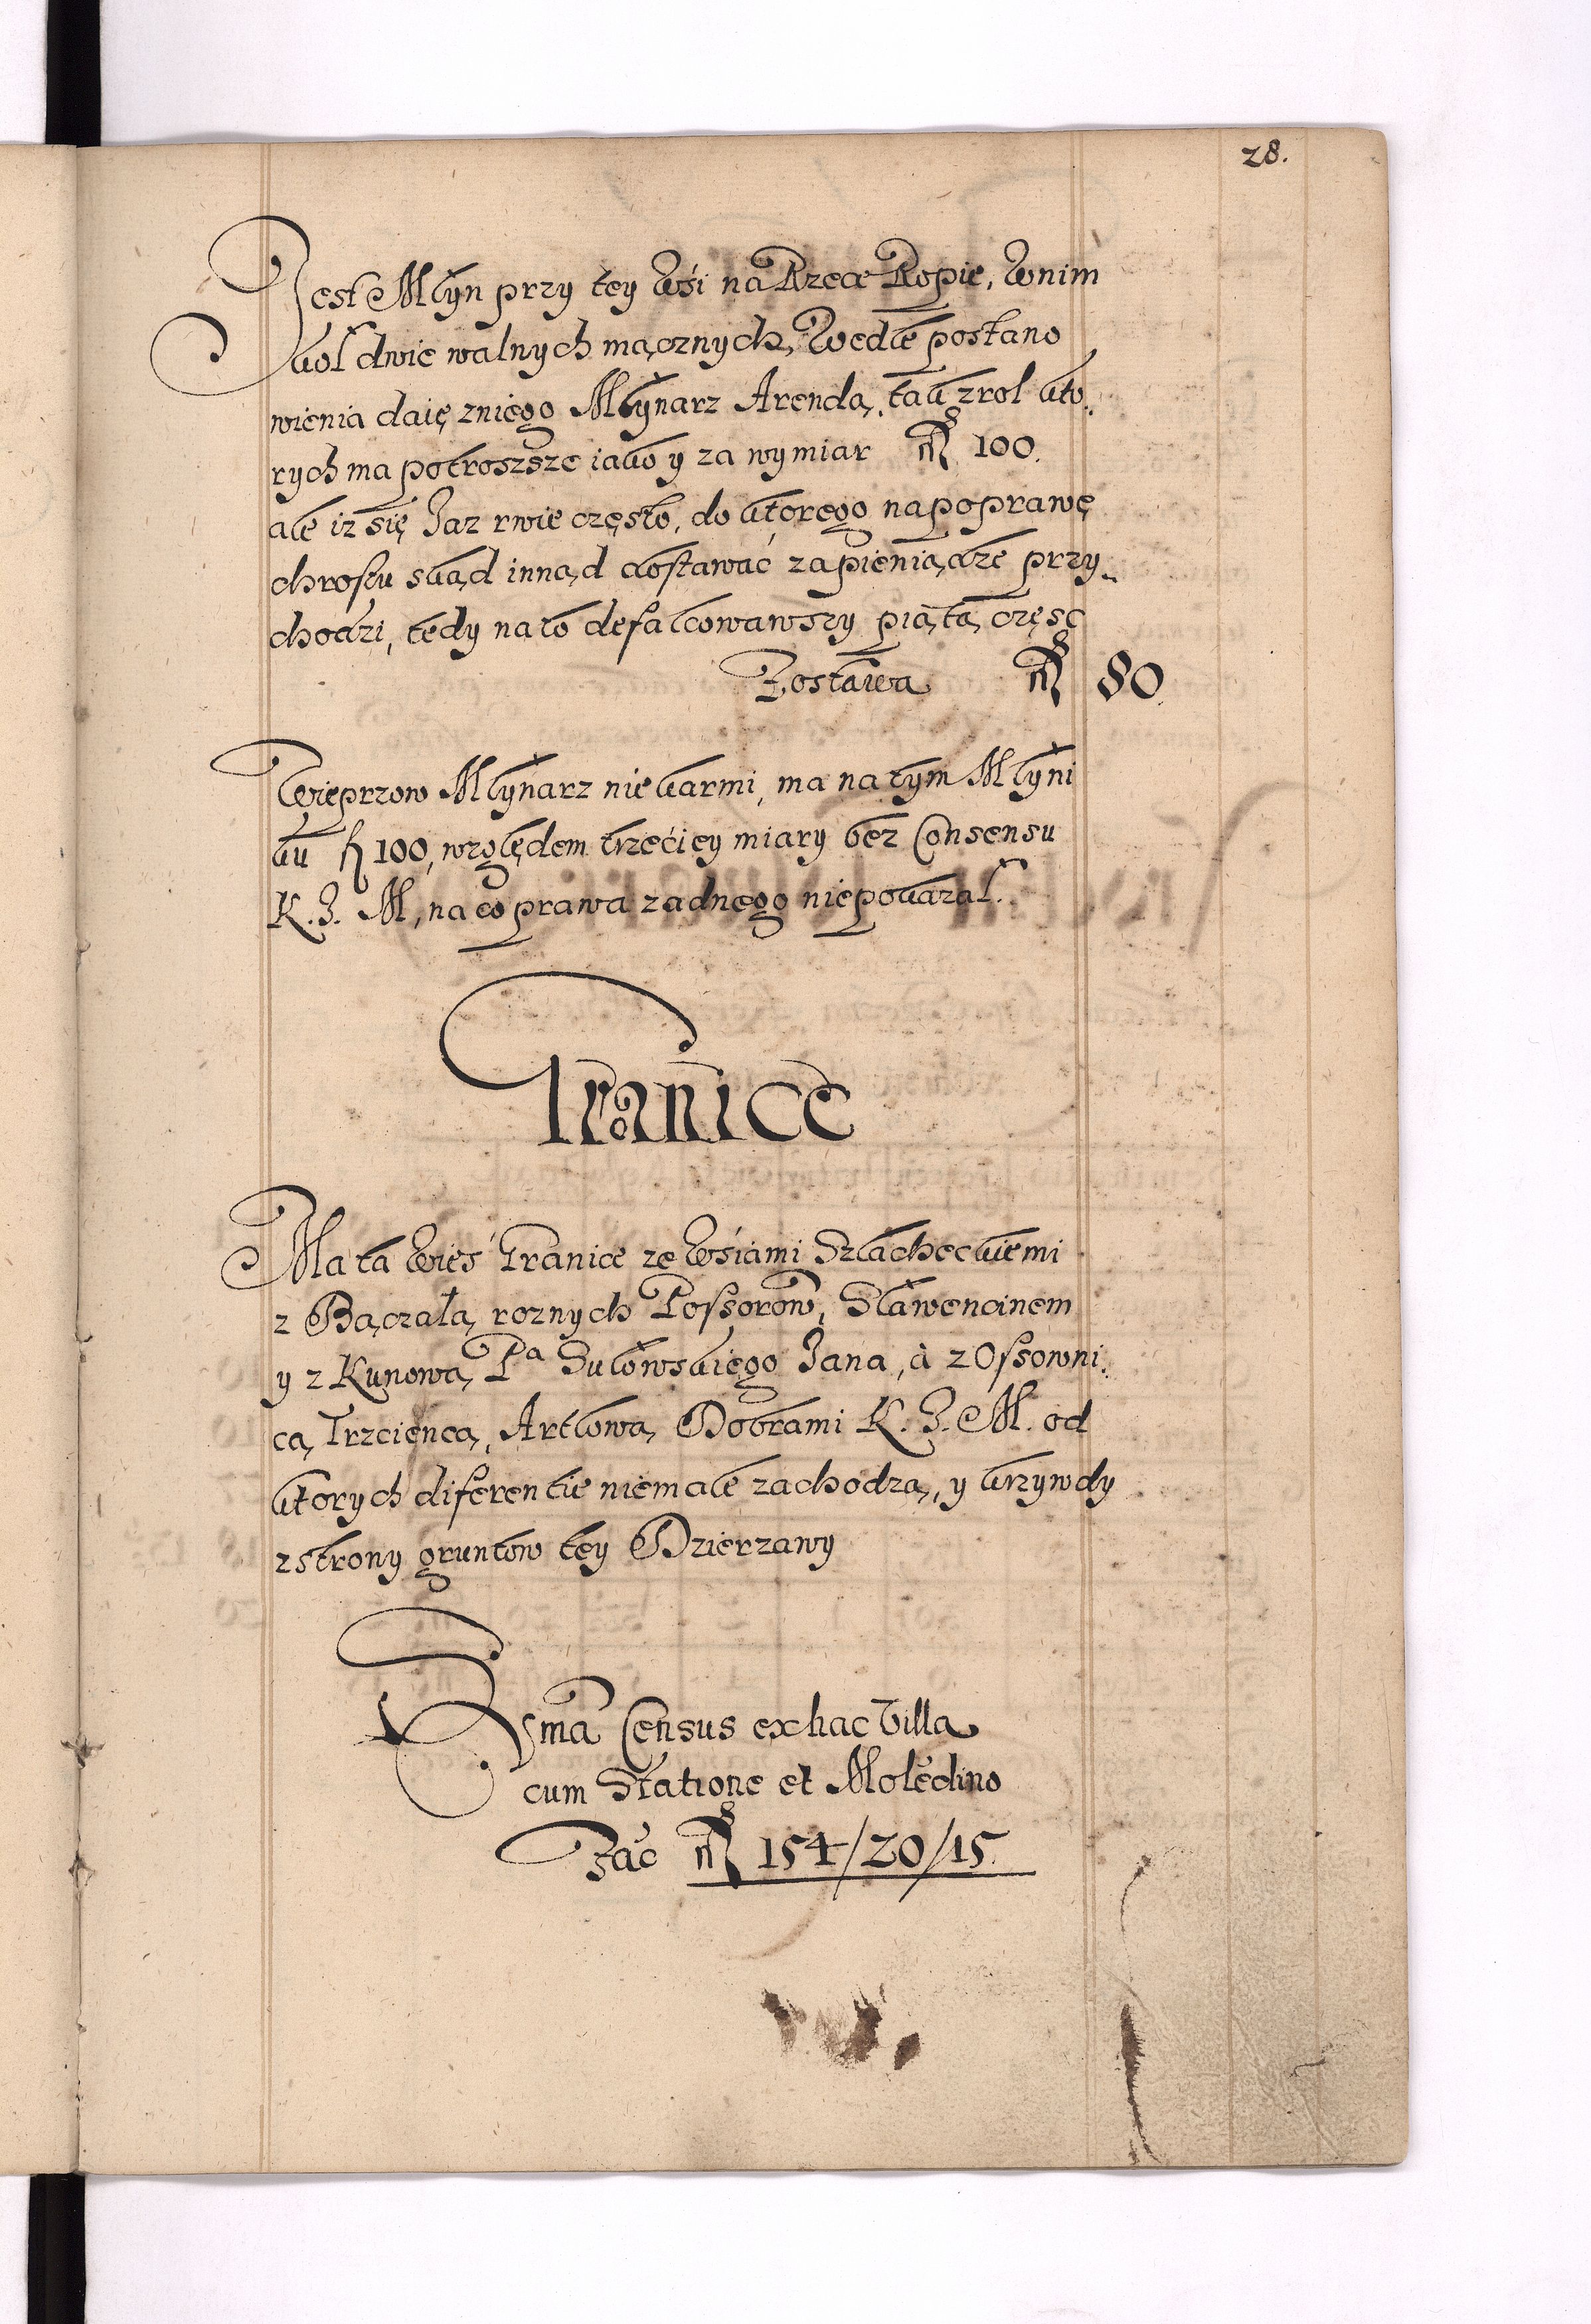 28.
Jest Młyn przy tey wśi na Rzece Ropie, w nim
kół dwie walnych mącznych, wedle postano
wienia daię z niego Młynarz Arendą, tak z rol kto:
rych ma potroszsze iako y za wymiar fl 100.
ale iz się Jaz rwie często, do ktorego na poprawę
chrostu skąd innąd dostawać za pieniądze przy-
chodzi, tedy na to defalcowawszy piątą część
Zostawa fl 80.
Wieprzow Młynarz nie karmi, ma na tym Młyni
ku fl 100, względem trzećiey miary bez Consensu
K. J. M, na co prawa zadnego nie pokazał.
Granice
Ma ta wieś Granice ze wśiami Szlacheckiemi
z Bączałą roznych Possorow, Sławencinem
y z Kunową Pa Sułowskiego Jana, à z Ossowni:
cą Trzciencą, Artlową Dobrami K. J. M. od
ktorych diferentie niemałe zachodzą, y krzywdy
z strony gruntow tey Dzierzawy
Sma Census ex hac Villa
cum Statione et Molēdino
Fac fl 154/20/15.